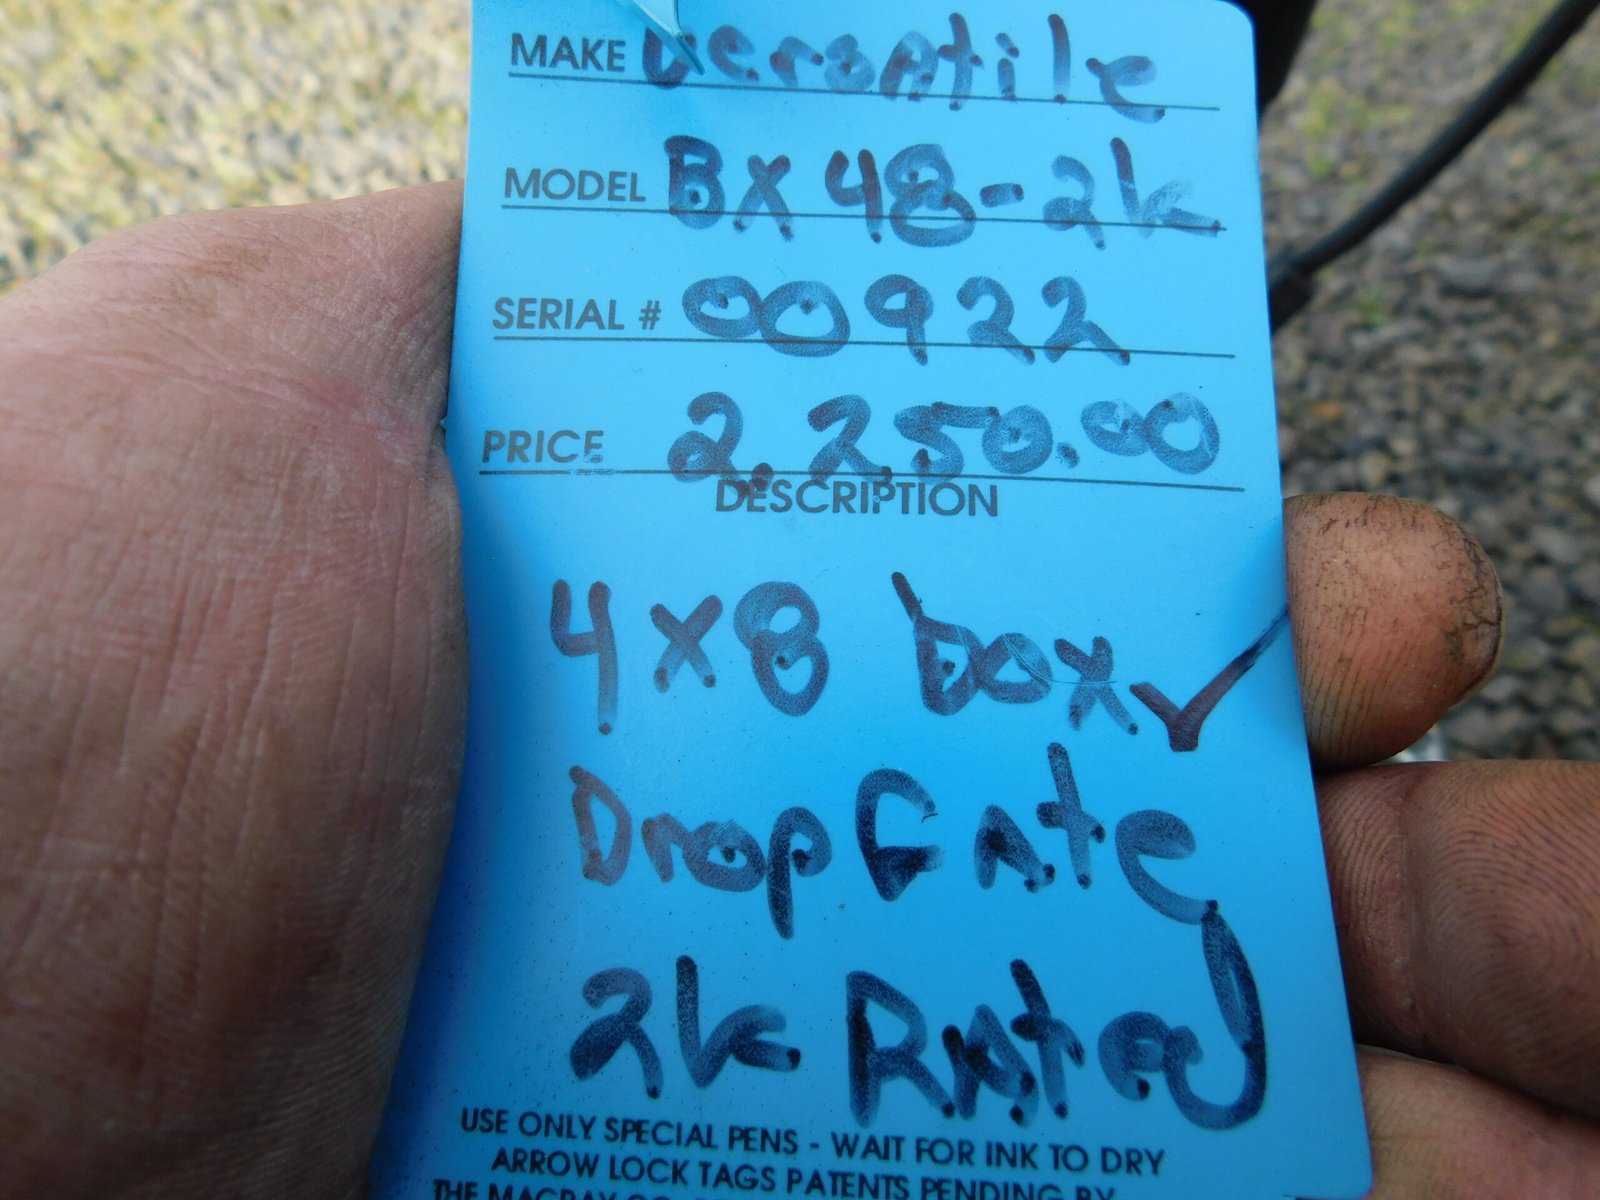 MAKE Versatile
MODEL BX 48-2k
SERIAL # 00922
PRICE 2,250.00
DESCRIPTION
4x8 box
Drop Gate
2k Rated
USE ONLY SPECIAL PENS - WAIT FOR INK TO DRY
ARROW LOCK TAGS PATENTS PENDING BY
THE MACRAY CO.